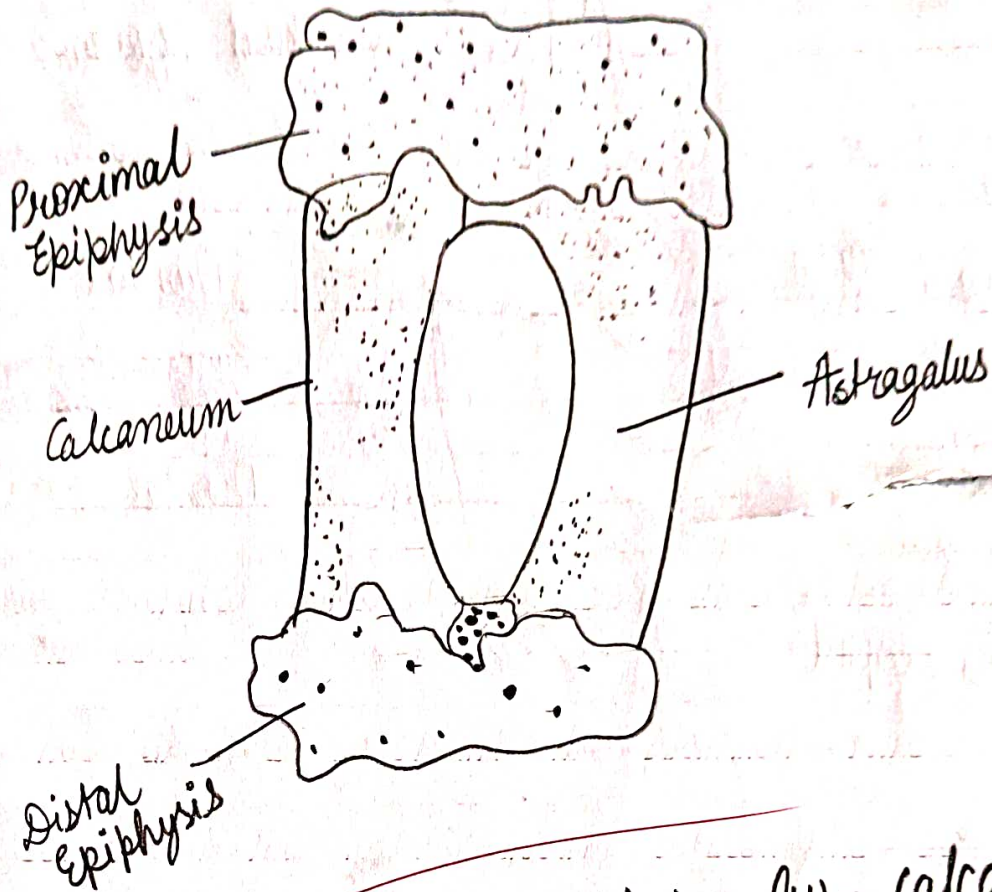 Proximal
Epiphysis
Calcaneum
Astragalus
Distal
Epiphysis